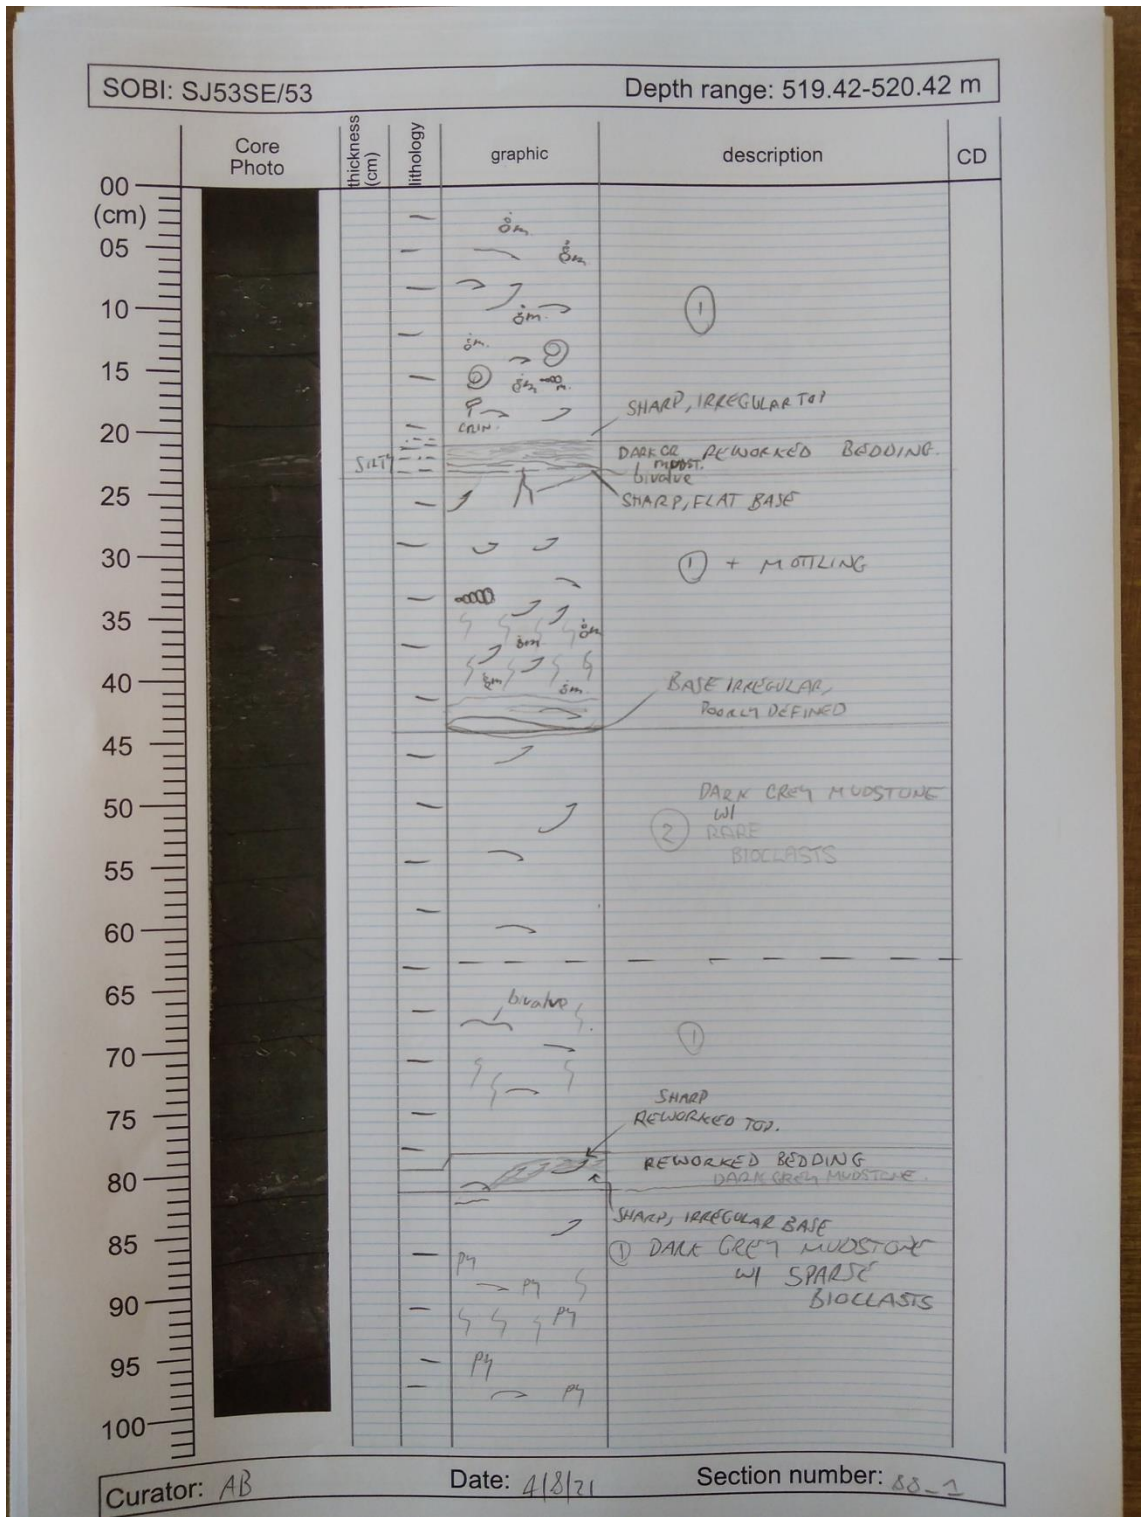 SOBI: SJ53SE/53
Depth range: 519.42-520.42 m
Core
Photo
thickness
(cm)
lithology
graphic
description
CD
00
(cm)
05
10
15
20
25
30
35
40
45
50
55
60
65
70
75
80
85
90
95
100
m
m
1
m.
m.
m
m.
CRIN.
SHARP, IRREGULAR TOP
SILTY
DARK GR REWORKED BEDDING.
MUDST.
bivalve
SHARP, FLAT BASE
1 + MOTTLING
m
m
m
m.
BASE IRREGULAR,
POORLY DEFINED
DARK GREY MUDSTONE
w/
2 RARE
BIOCLASTS
bivalve
1
SHARP
REWORKED TOP.
REWORKED BEDDING
DARK GREY MUDSTONE.
SHARP, IRREGULAR BASE
1 DARK GREY MUDSTONE
w/ SPARSE
BIOCLASTS
py
py
py
py
py
Curator: AB
Date: 4/8/21
Section number: 88_1